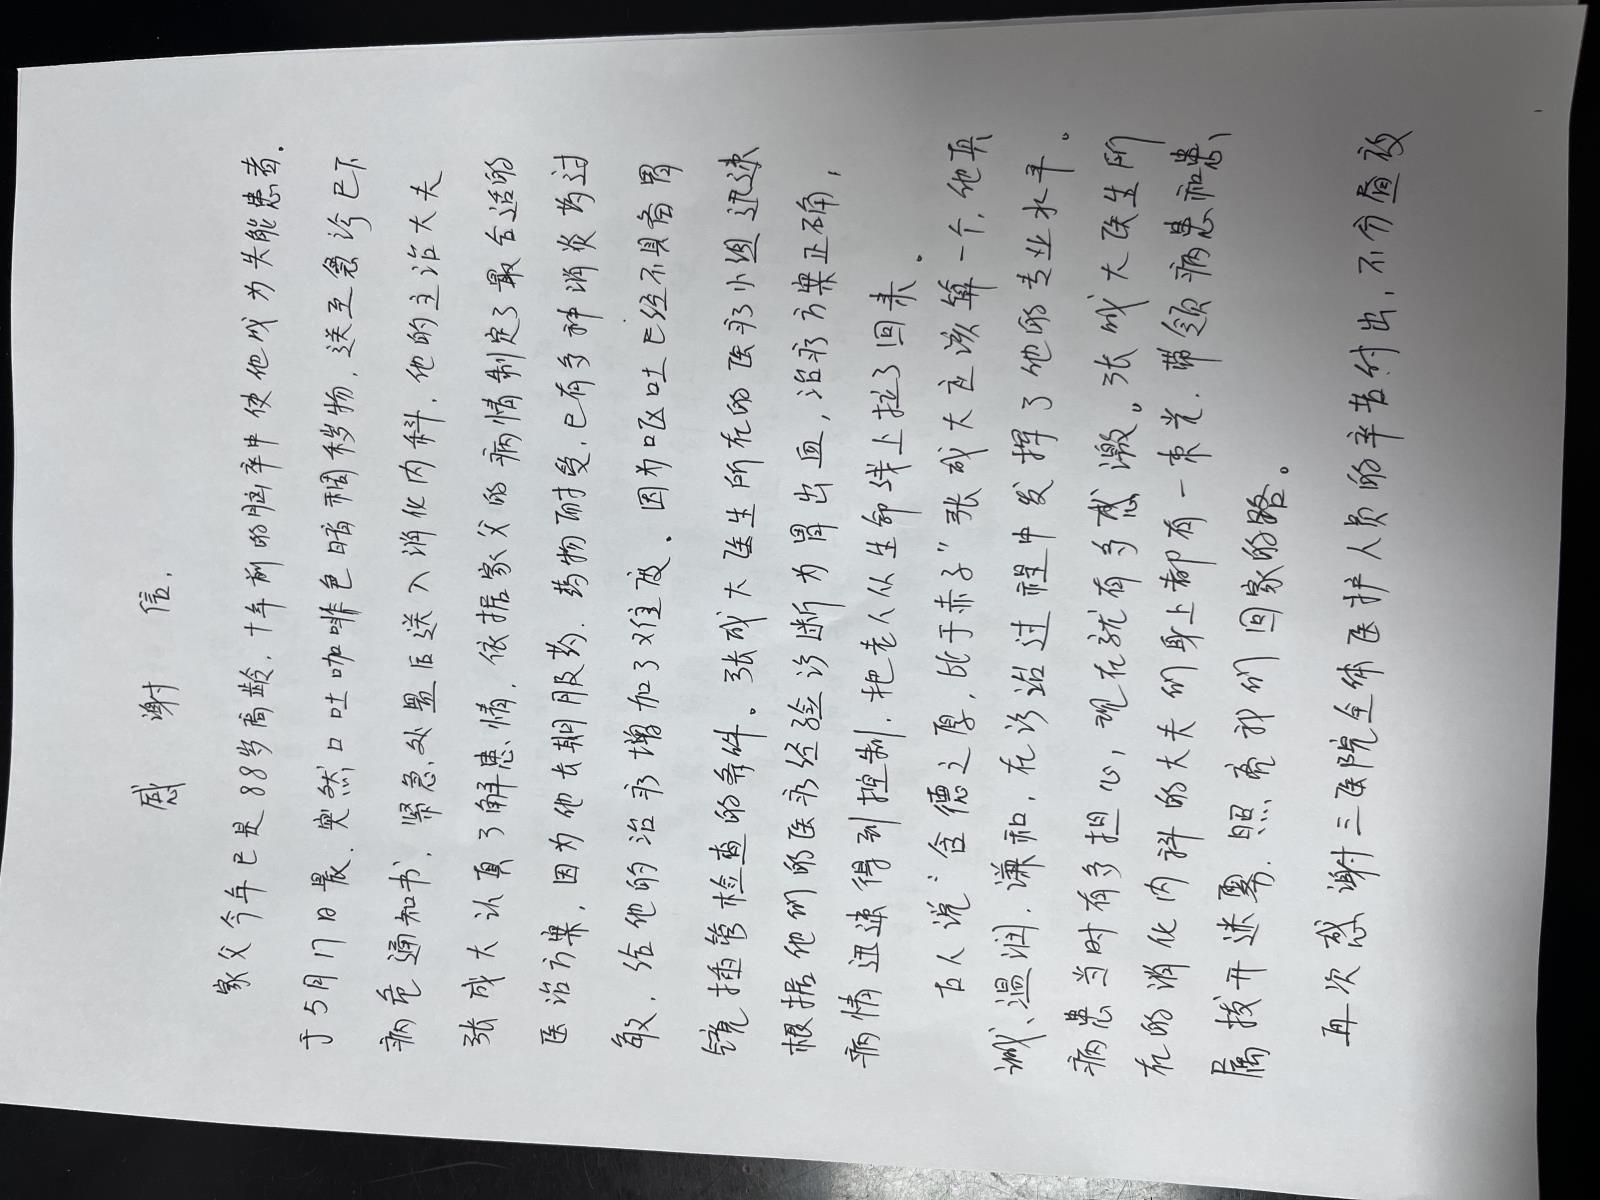 感谢信.
家父今年已是88岁高龄,十年前的脑卒中使他成为失能患者.
于5月17日晨.突然口吐咖啡色暗稠秽物,送至急诊已下
病危通知书.紧急处置后送入消化内科.他的主治大夫
张成大认真了解患情.依据家父的病情制定了最合适的
医治方案.因为他长期服药.药物耐受,已有多种消炎药过
敏.给他的治疗增加了难度.因为呕吐已经不具备胃
镜插管检查的条件。张成大医生所在的医疗小组迅速
根据他们的医疗经验诊断为胃出血,治疗方案正确,
病情迅速得到控制.把老人从生命线上拉了回来.
古人说“含德之厚,比于赤子”张成大应该算一个.他真
诚、温润.谦和.在诊治过程中发挥了他的专业水平.
病患当时有多担心,现在就有多感激。张成大医生所
在的消化内科的大夫们身上都有一束光.带领病患和患
属拨开迷雾.照亮我们回家的路。
再次感谢三医院全体医护人员的辛苦付出,不分昼夜